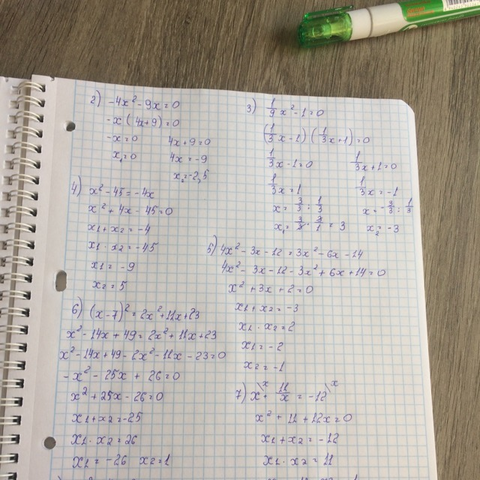 2) -4x² - 9x = 0
-x(4x+9) = 0
-x = 0    4x+9 = 0
x₁ = 0    4x = -9
x₂ = -2,5
3) 1/9 x² - 1 = 0
(1/3 x - 1)(1/3 x + 1) = 0
1/3 x - 1 = 0    1/3 x + 1 = 0
1/3 x = 1    1/3 x = -1
x = 3/3 : 1/3    x = -3/3 : 1/3
= 3    x₂ = -3
4) x² - 45 = -4x
x² + 4x - 45 = 0
x₁ + x₂ = -4
x₁ · x₂ = -45
x₁ = -9
x₂ = 5
5) 4x² - 3x - 12 = 3x² - 6x - 14
4x² - 3x - 12 - 3x² + 6x + 14 = 0
x² + 3x + 2 = 0
x₁ + x₂ = -3
x₁ · x₂ = 2
x₁ = -2
x₂ = -1
6) (x-7)² = 2x² + 11x + 23
x² - 14x + 49 = 2x² + 11x + 23
x² - 14x + 49 - 2x² - 11x - 23 = 0
-x² - 25x + 26 = 0
x² + 25x - 26 = 0
x₁ + x₂ = -25
x₁ · x₂ = 26
x₁ = -26    x₂ = 1
7) x\x + 11/x = -12\x
x² + 11 + 12x = 0
x₁ + x₂ = -12
x₁ · x₂ = 11